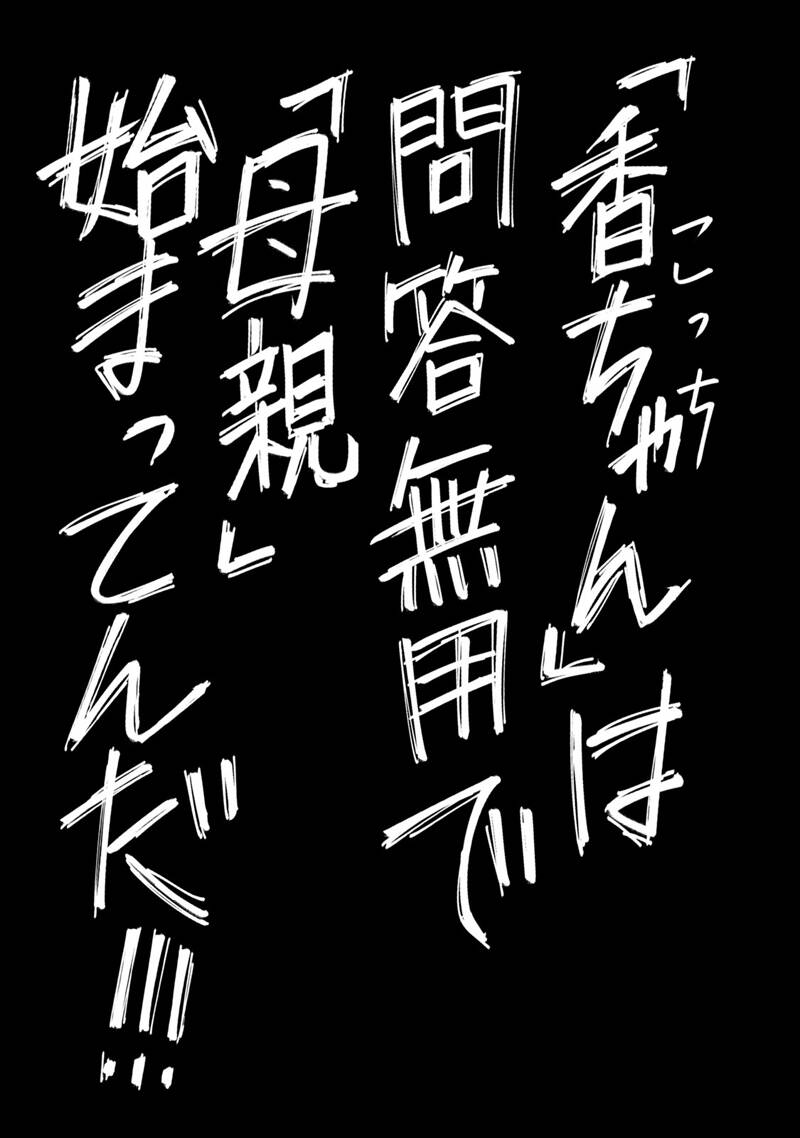 「香ちゃん」は
こっち
問答無用で
「母親」
始まってんだ!!!